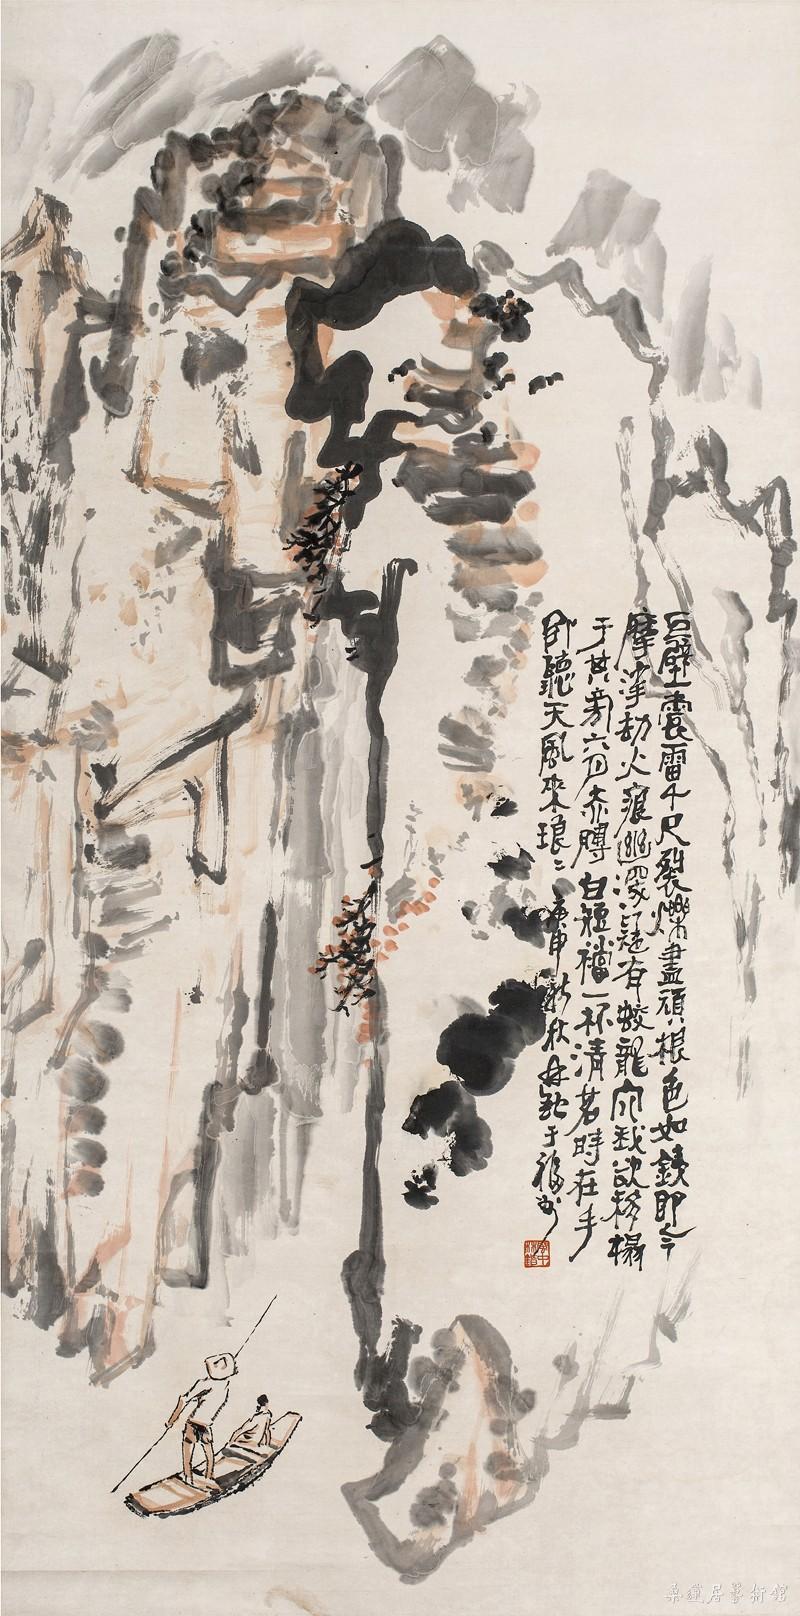 巨壁震雷千尺裂爍盡頑根色如鐵即今
摩挲劫火痕幽邃
有蛟龍穴我欲移榻
于其旁六月赤膊白短襠一杯清茗時在手
卧聽天風來琅〻庚申新秋林
于福州
藥蓮居藝術館